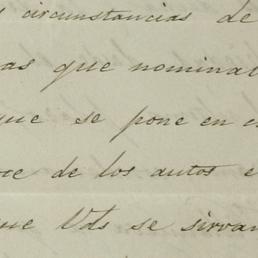 circunstancias de
que nominal
que se pone en
de los autos
Vds se sirvan